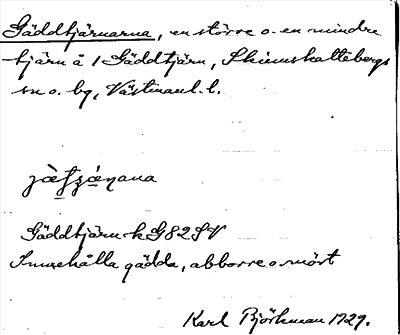 Gäddtjärnarna, en större o. en mindre
tjärn å 1 Gäddtjärn, Skinnskattebergs
sn o. bg, Västmanl. l.
Gäddtjärn k G 82 SV
Innehålla gädda, abborre o mört
Karl Björkman 1929.